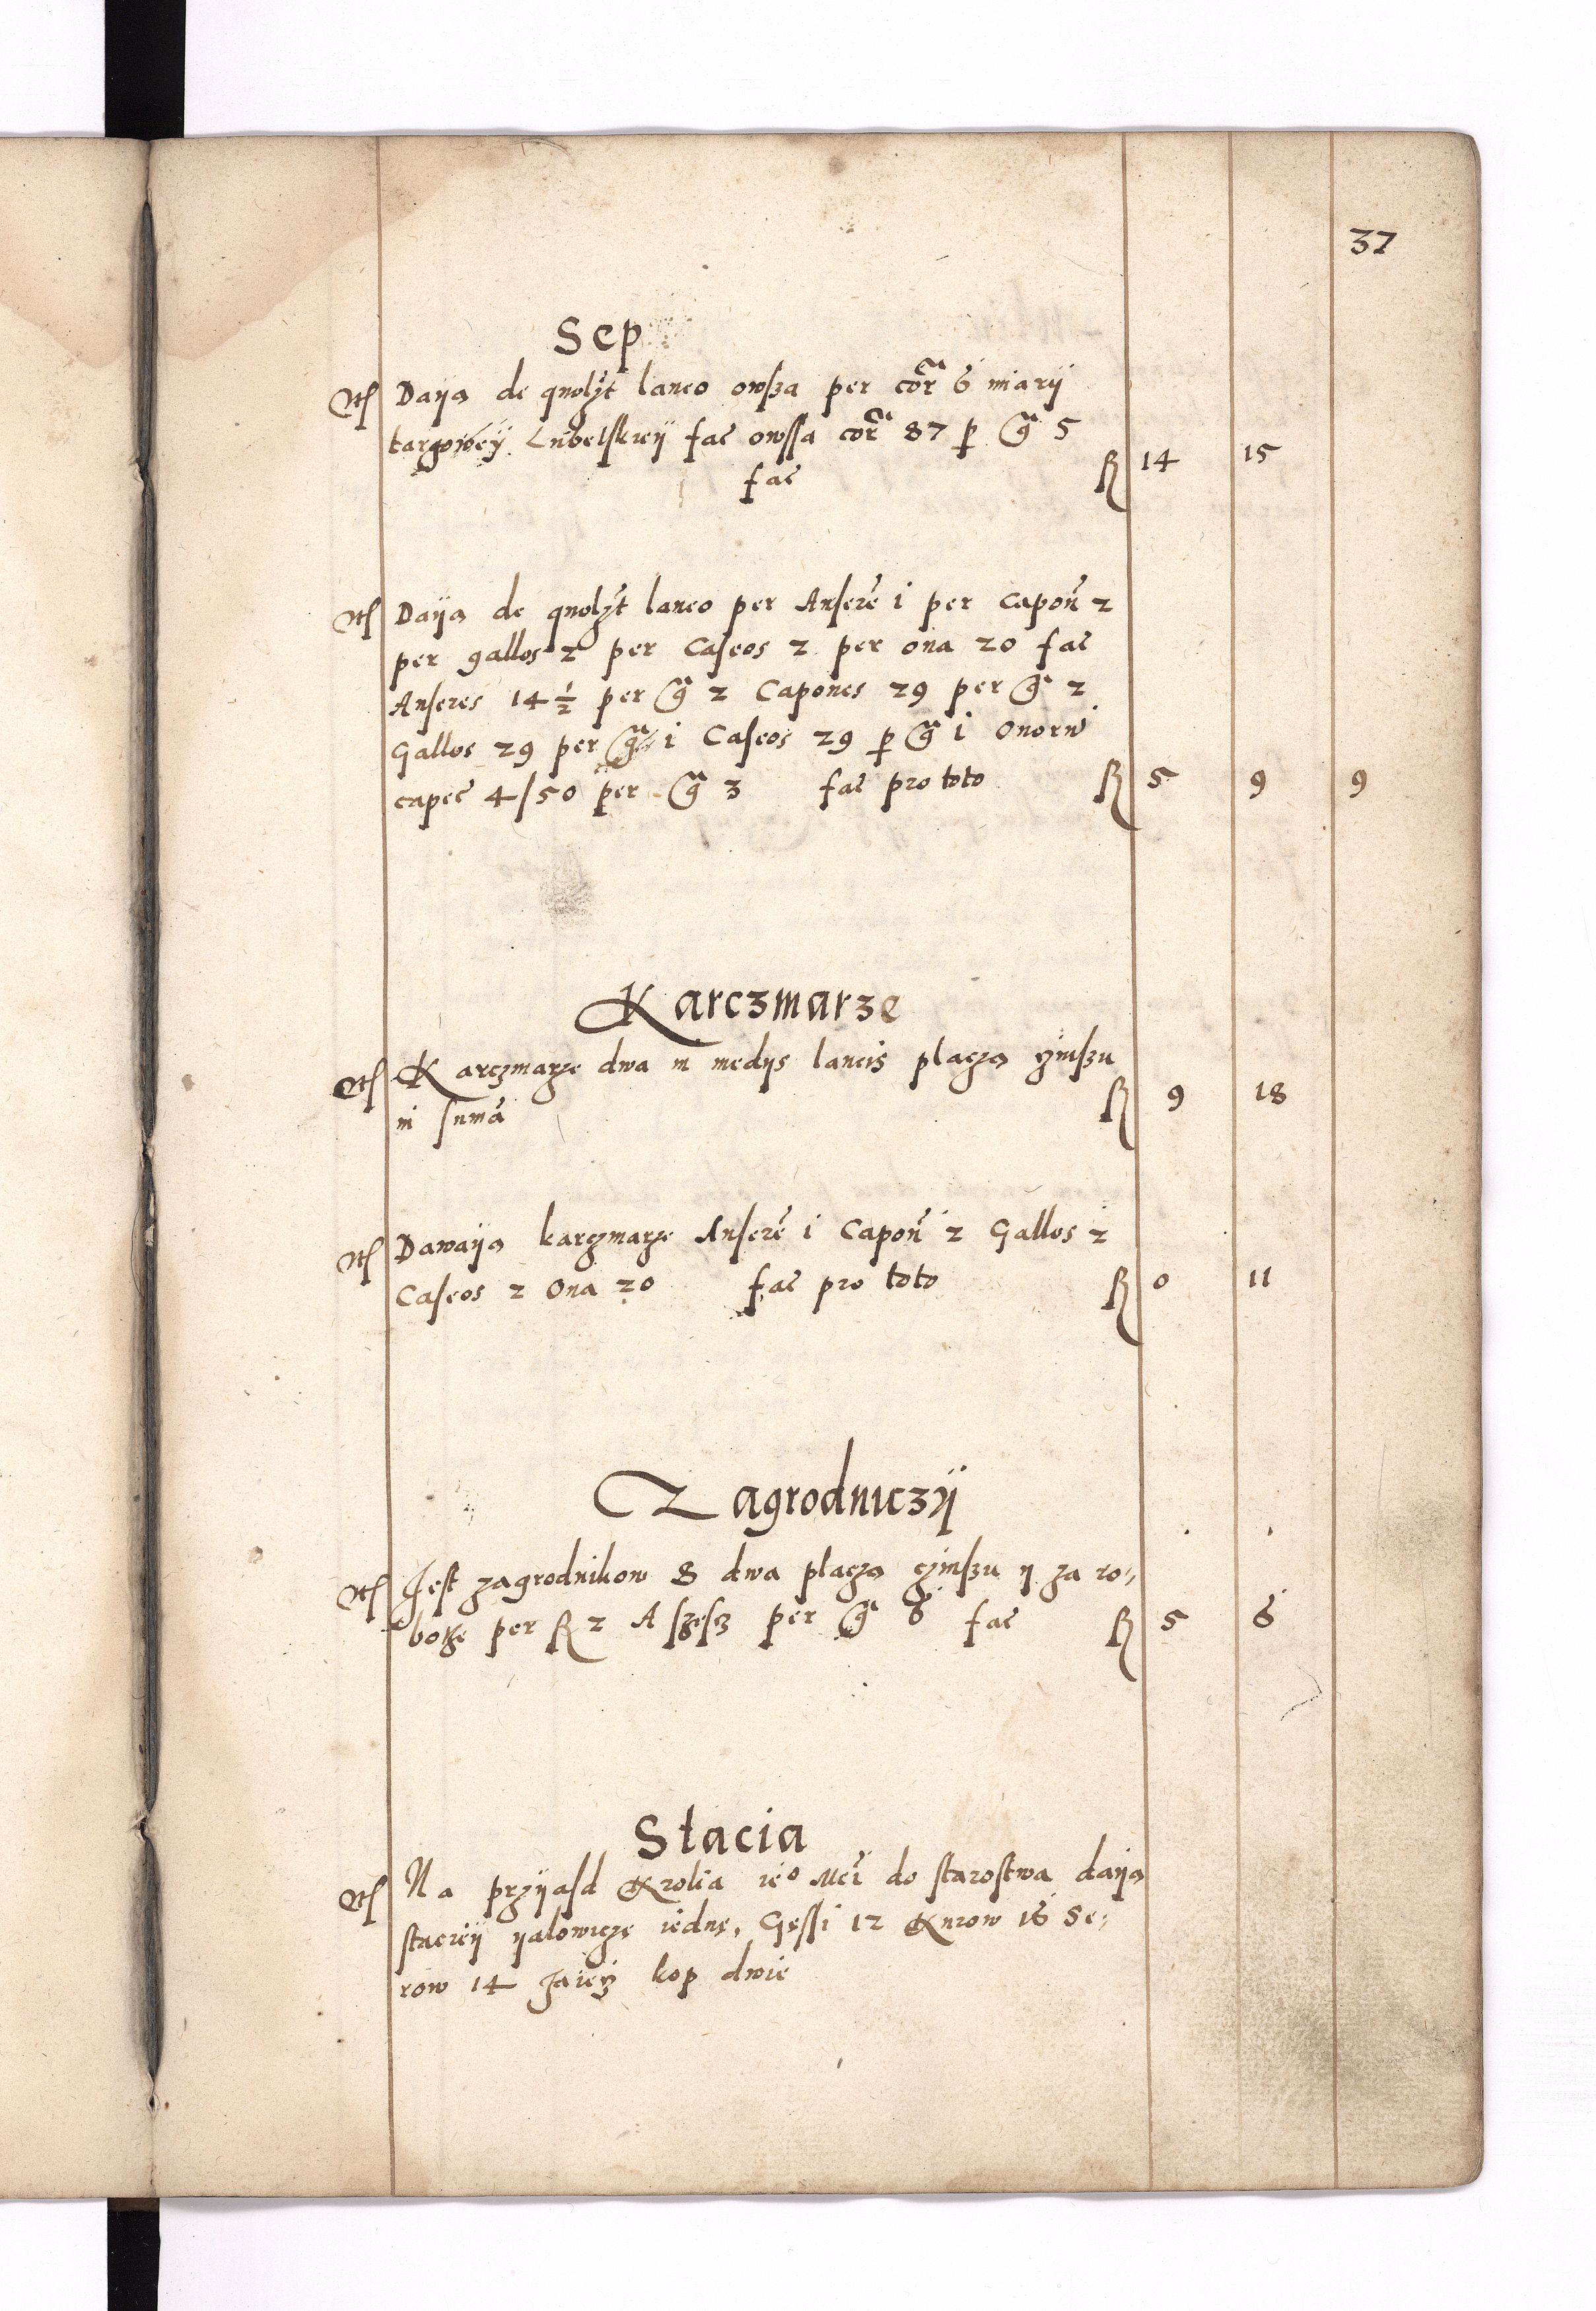 37
Sep
Itē Daÿą de quolʒt laneo owsza per cor̃ 6 miarÿ
targoweÿ Lubelskieÿ fac̃ owssa cor̃ 87 p̱ gr̃ 5
fac̃ fl 14 15
Itē Daÿą de quolʒt laneo per Anserẽ i per Capoñ 2
per gallos 2 per Caseos 2 per oua 20 fac̃
Anseres 14 ½ per gr̃ 2 Capones 29 per gr̃ 2
Gallos 29 per gr̃ i Caseos 29 p̱ gr̃ i Ouorũ
capec̃ 4/50 per gr̃ 3 fac̃ pro toto fl 5 9 9
Karczmarze
Itē Karczmarze dwa in medÿs laneis placzą czinszu
in sum̃a fl 9 18
Itē Dawaÿą karczmarze Anserẽ i Capoñ 2 Gallos 2
Caseos 2 Oua 20 fac̃ pro toto fl 0 11
Zagrodniczÿ
Itē Jest zagrodnikow 8 dwa placzą czinszu ÿ za ro„
boczę per fl 2 A szesz per gr̃ 8 fac̃ fl 5 6
Stacia
Itē Na przÿasd Krolia ie⁰ Mci do starostwa daÿą
stacieÿ ÿalowiczę iednę, Gęssi 12 Kurow 16 Se„
row 14 Jaiecz kop dwie